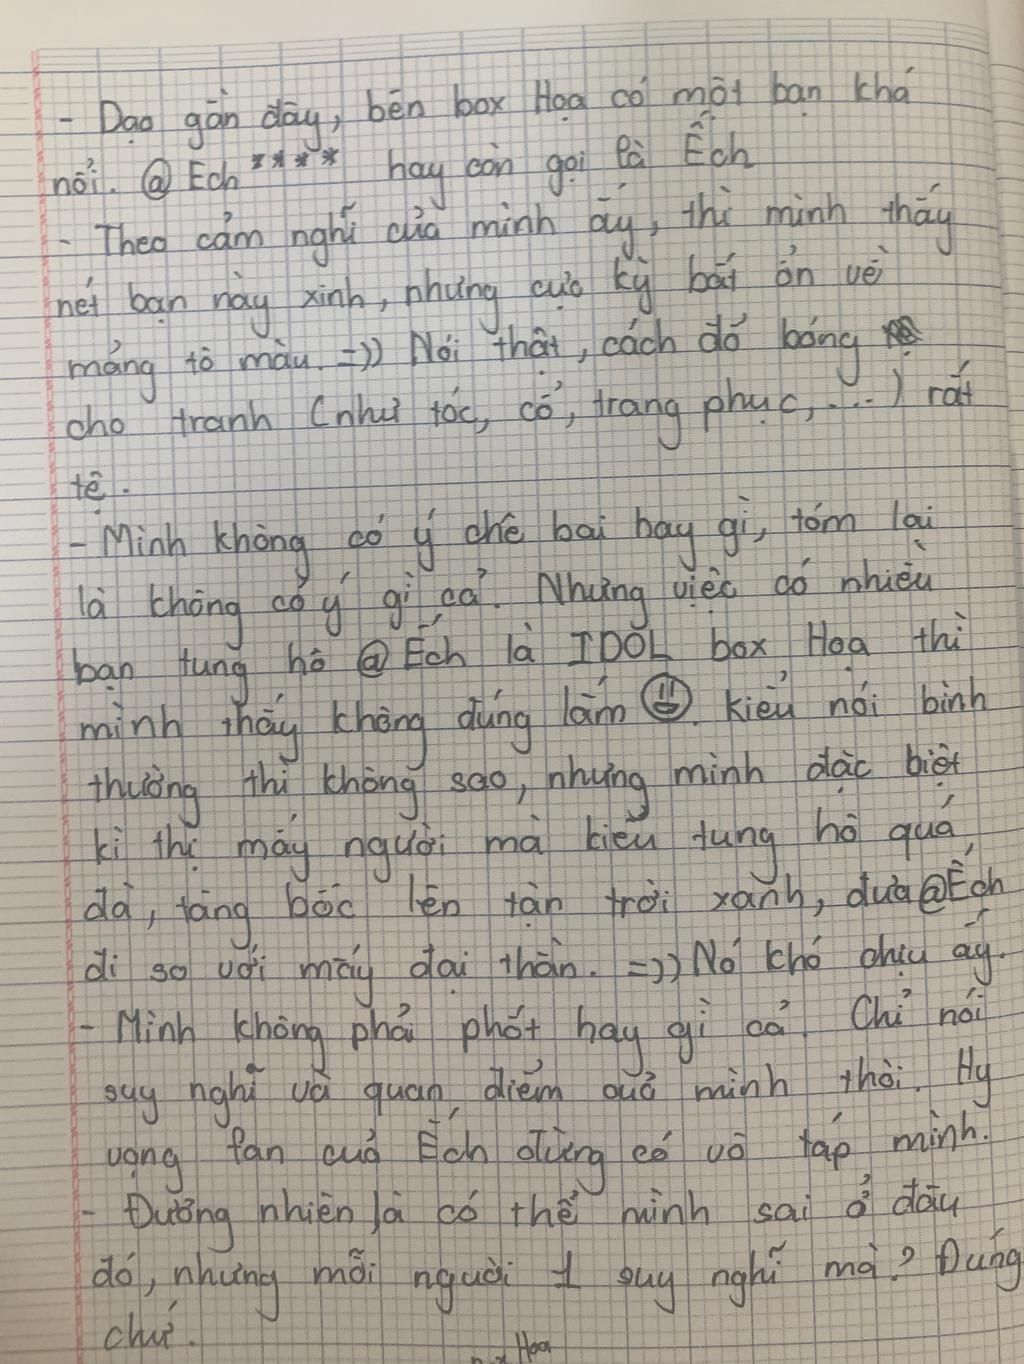 - Dạo gần đây, bên box Họa có một bạn khá
nổi. @Ech**** hay còn gọi là Ếch
- Theo cảm nghĩ của mình ấy, thì mình thấy
nét bạn này xinh, nhưng cực kỳ bất ổn về
mảng tô màu. =)) Nói thật, cách đổ bóng
cho tranh (như tóc, cổ, trang phục,....) rất
tệ.
- Mình không có ý chê bai hay gì, tóm lại
là không có ý gì cả. Nhưng việc có nhiều
bạn tung hô @Ếch là IDOL box Họa thì
mình thấy không đúng lắm. kiểu nói bình
thường thì không sao, nhưng mình đặc biệt
kì thị mấy người mà kiểu tung hô quá
đà, tâng bốc lên tận trời xanh, đưa @Ếch
đi so với mấy đại thần. =)) Nó khó chịu ấy.
- Mình không phải phốt hay gì cả. Chỉ nói
suy nghĩ và quan điểm của mình thôi. Hy
vọng fan của Ếch đừng có vô táp mình.
- Đương nhiên là có thể mình sai ở đâu
đó, nhưng mỗi người 1 suy nghĩ mà? Đúng
chứ.
Họa